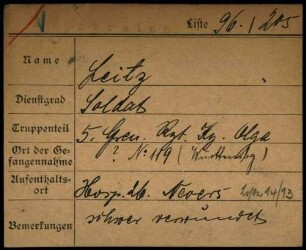 Liste 96./205
Name Leitz
Dienstgrad Soldat
Truppenteil 5. Gren. Rgt. Kg. Olga
Ort der Gefangennahme ? No 119 (Württembg)
Aufenthaltsort Hosp. 26. Nevers
Bemerkungen schwer verwundet